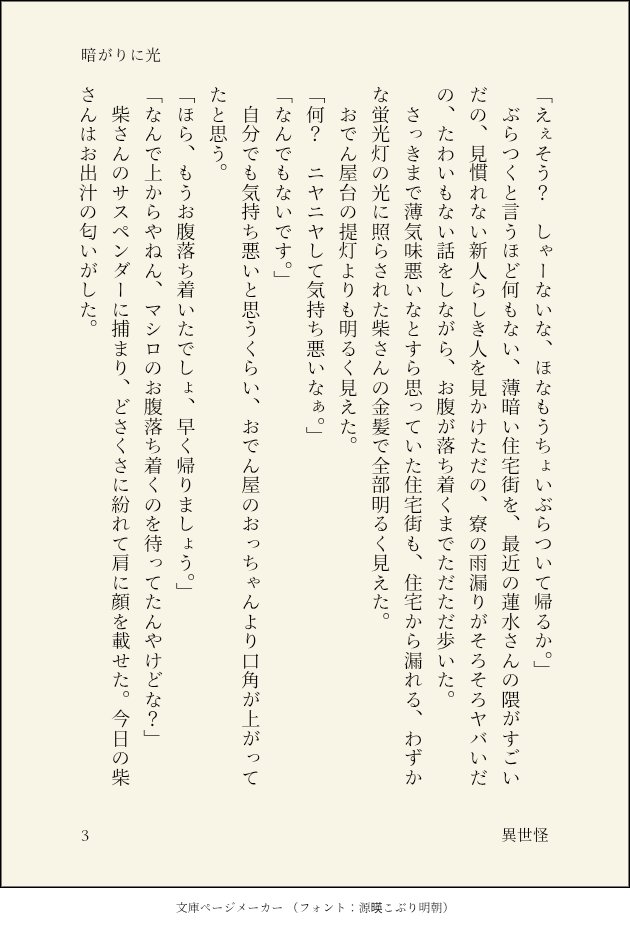 暗がりに光
「えぇそう？　しゃーないな、ほなもうちょいぶらついて帰るか。」
　ぶらつくと言うほど何もない、薄暗い住宅街を、最近の蓮水さんの隈がすごい
だの、見慣れない新人らしき人を見かけただの、寮の雨漏りがそろそろヤバいだ
の、たわいもない話をしながら、お腹が落ち着くまでただただ歩いた。
　さっきまで薄気味悪いなとすら思っていた住宅街も、住宅から漏れる、わずか
な蛍光灯の光に照らされた柴さんの金髪で全部明るく見えた。
　おでん屋台の提灯よりも明るく見えた。
「何？　ニヤニヤして気持ち悪いなぁ。」
「なんでもないです。」
　自分でも気持ち悪いと思うくらい、おでん屋のおっちゃんより口角が上がって
たと思う。
「ほら、もうお腹落ち着いたでしょ、早く帰りましょう。」
「なんで上からやねん、マシロのお腹落ち着くのを待ってたんやけどな？」
　柴さんのサスペンダーに捕まり、どさくさに紛れて肩に顔を載せた。今日の柴
さんはお出汁の匂いがした。
3
異世怪
文庫ページメーカー（フォント：源暎こぶり明朝）